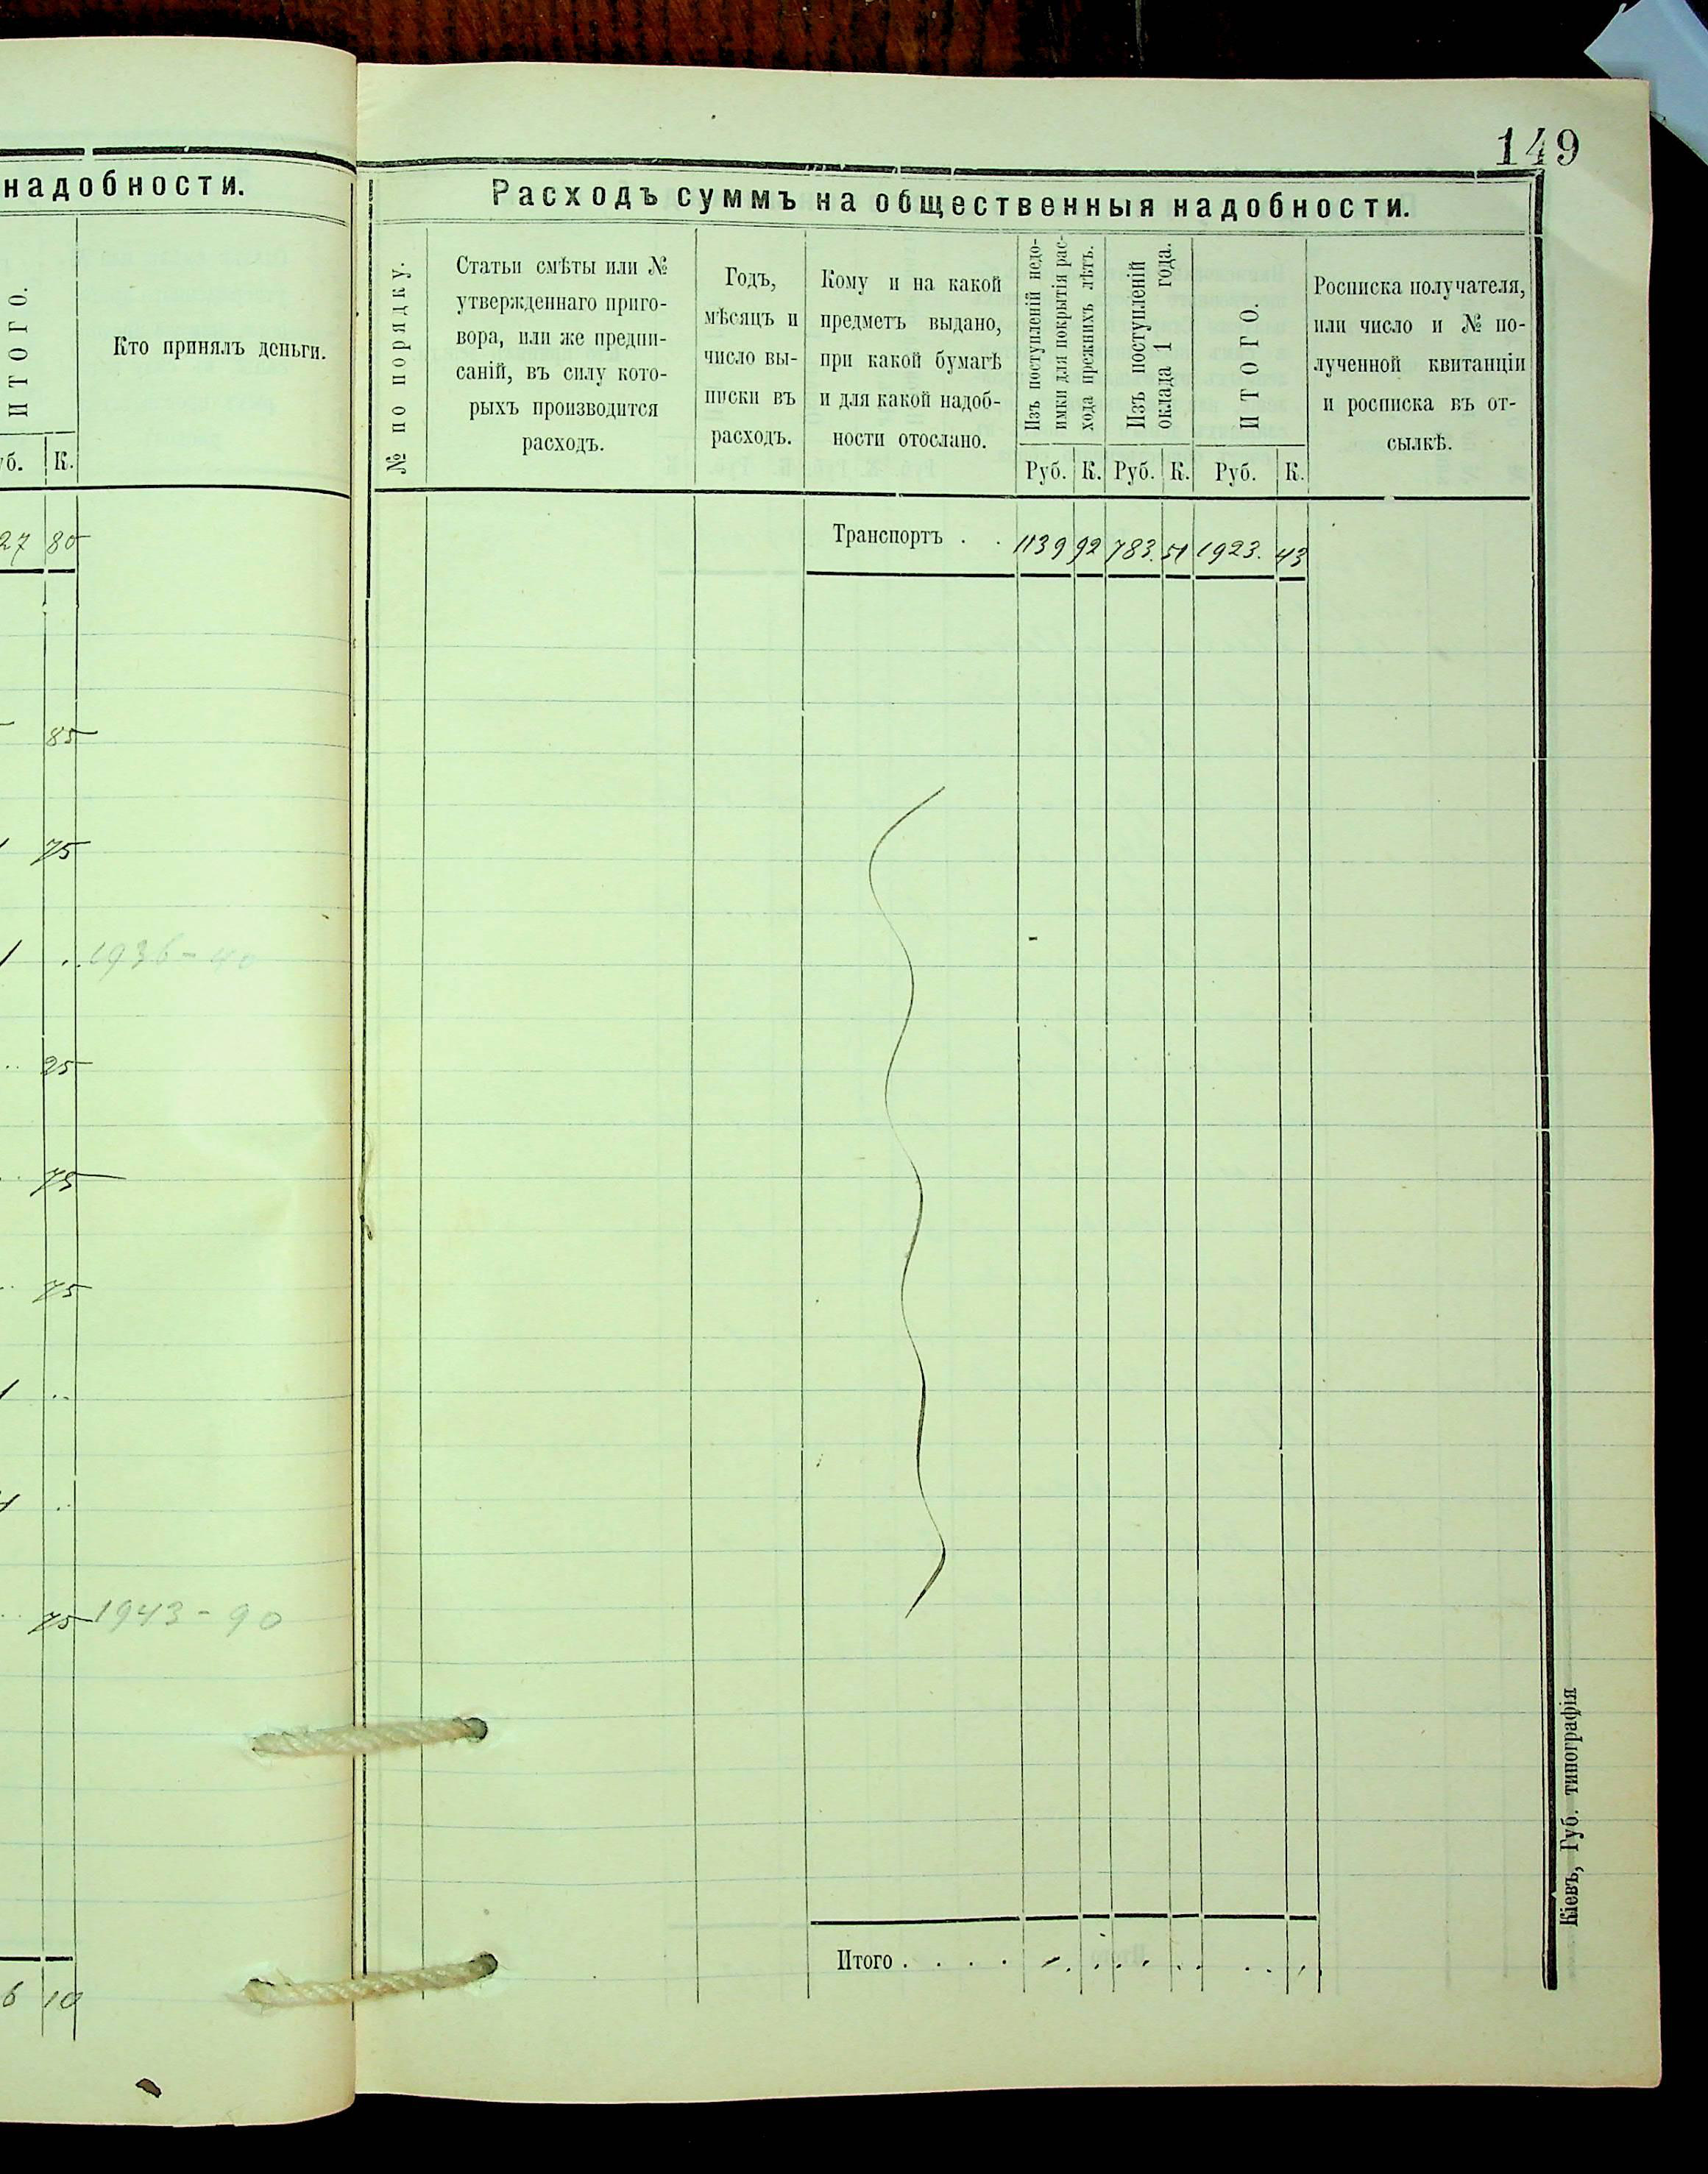 149
надобности.
ИТОГО.
Кто принялъ деньги.
уб. К.
27 80
85
75
1936-40
25
75
75
75 1943-90
6 10
Расходъ суммъ на общественныя надобности.
№ по порядку.
Статьи смѣты или №
утвержденнаго приго-
вора, или же предпи-
саній, въ силу кото-
рыхъ производится
расходъ.
Годъ,
мѣсяцъ и
число вы-
писки въ
расходъ.
Кому и на какой
предметъ выдано,
при какой бумагѣ
и для какой надоб-
ности отослано.
Изъ поступленій недо-
имки для покрытія рас-
хода прежнихъ лѣтъ.
Изъ поступленій
оклада 1 года.
ИТОГО.
Росписка получателя,
или число и № по-
лученной квитанціи
и росписка въ от-
сылкѣ.
Руб. К. Руб. К. Руб. К.
Транспортъ . . 1139 92 783. 51 1923. 43
Итого . . . .
Кіевъ, Губ. типографія